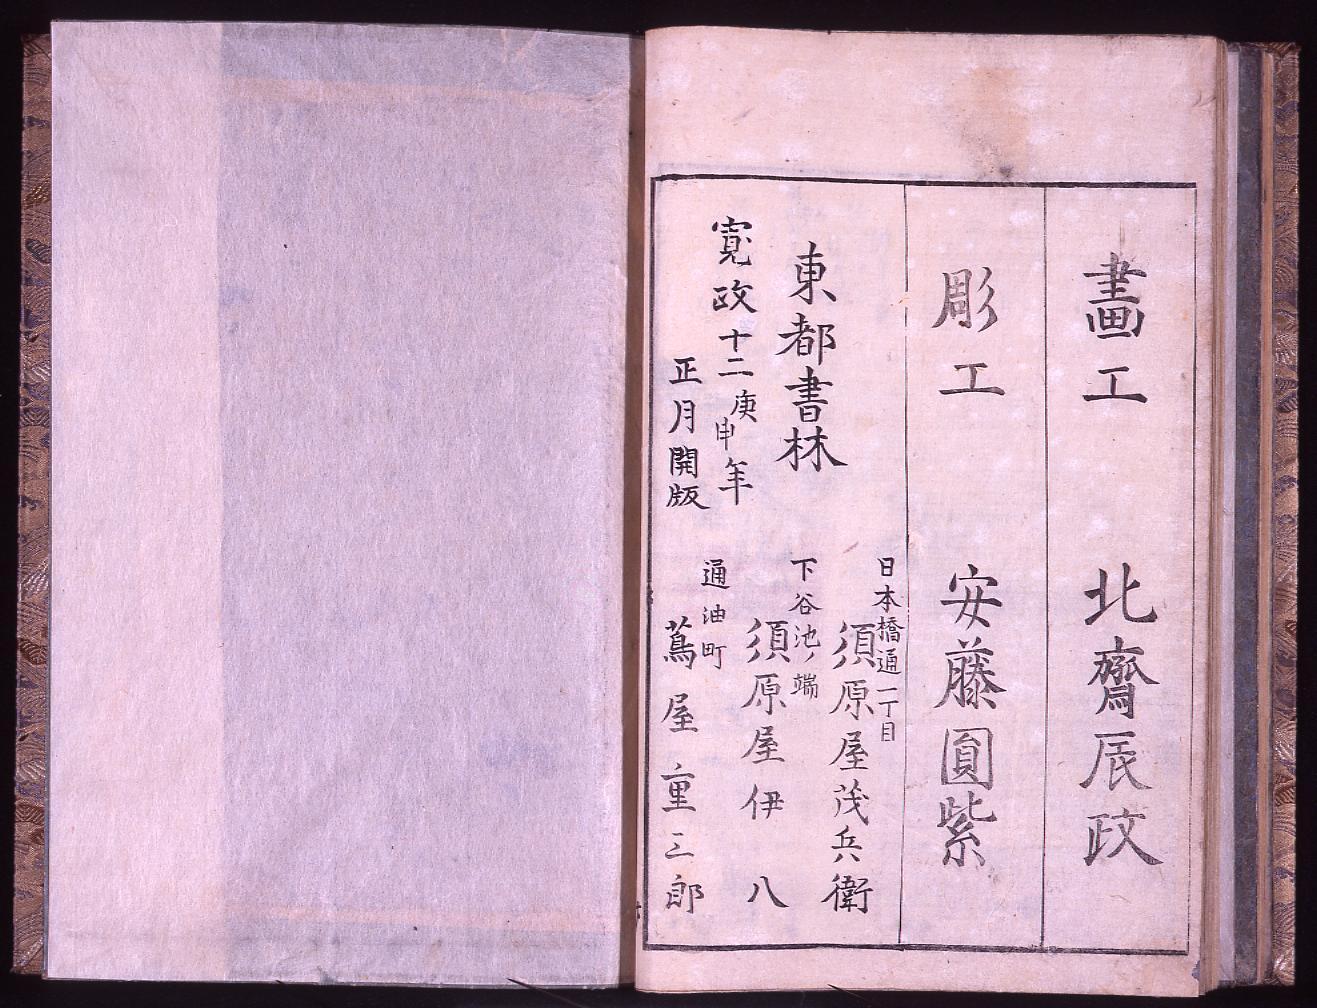 畫工 北齋辰政
彫工 安藤圓紫
東都書林
日本橋通一丁目
須原屋茂兵衛
下谷池ノ端
須原屋伊八
通油町
蔦屋重三郎
寛政十二庚申年
正月開版